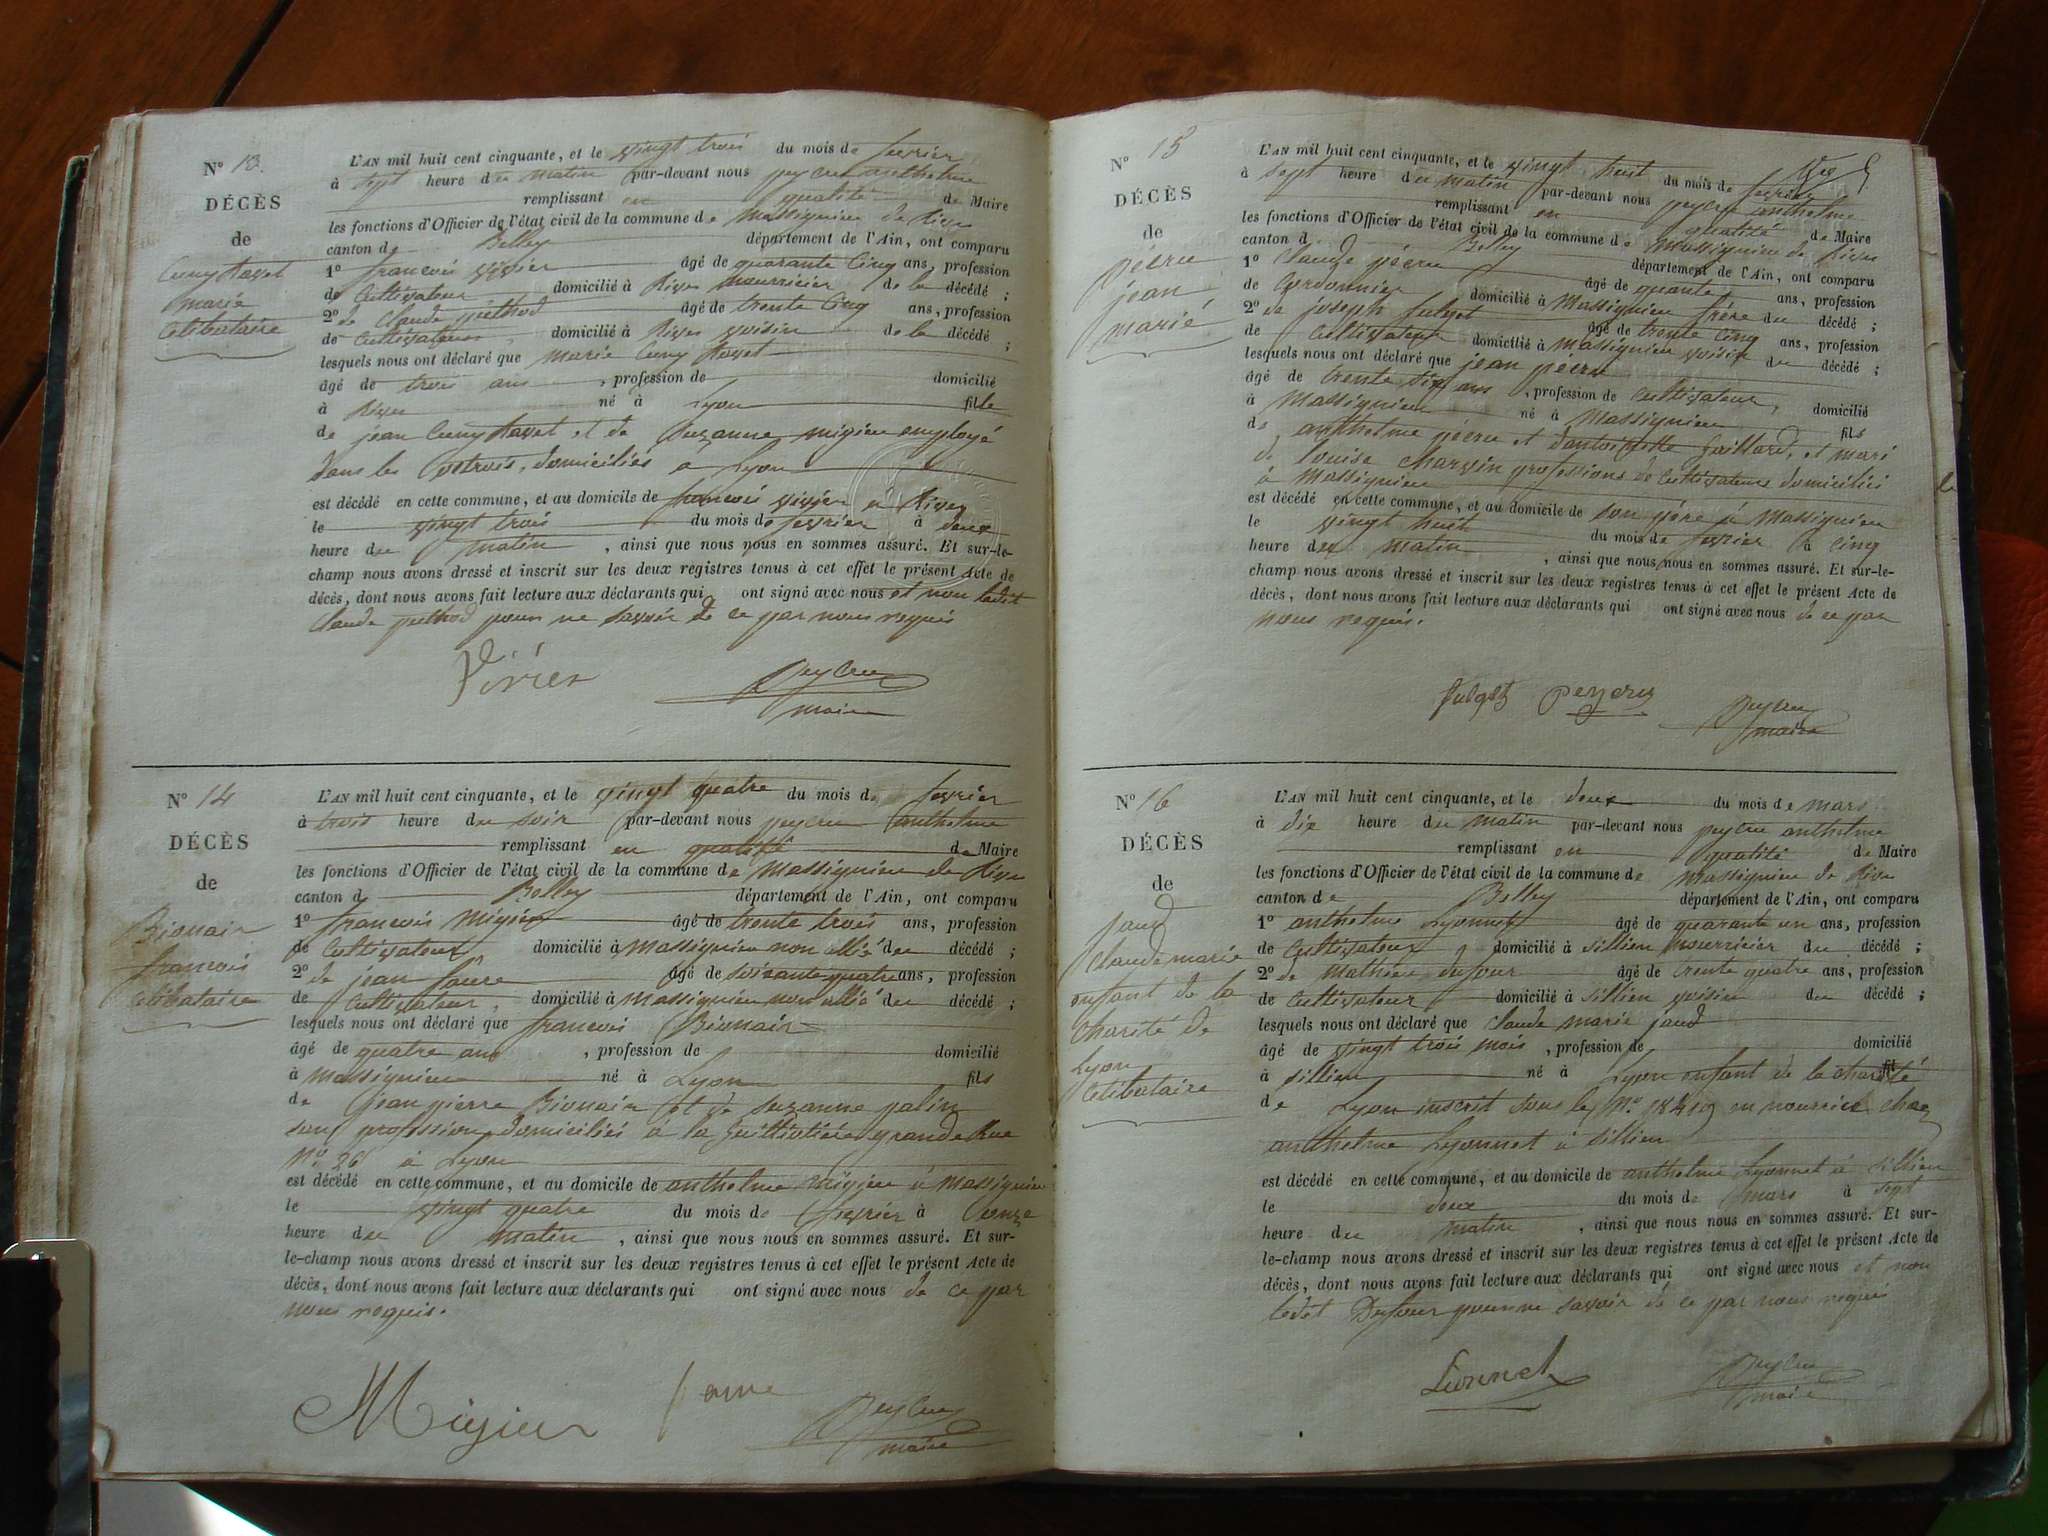 N° 13.
DÉCÈS
de
Cuny Ravet
marie
Célibataire
L'AN mil huit cent cinquante, et le vingt trois du mois de fevrier
à sept heure du matin par-devant nous peycru anthelme
remplissant en qualité de Maire
les fonctions d'Officier de l'état civil de la commune de Massignieu de Rives
canton de Belley département de l'Ain, ont comparu
1° francois vivier âgé de quarante Cinq ans, profession
de Cultivateur domicilié à Rives nourricier de la décédé ;
2° de Claude puthod âgé de trente Cinq ans, profession
de Cultivateur, domicilié à Rives voisin de la décédé ;
lesquels nous ont déclaré que marie Cuny Ravet
âgé de trois ans, profession de domicilié
à Rives né à Lyon fille
de jean Cuny Ravet et de Suzanne migieu employé
dans les Octrois, domiciliés a Lyon
est décédé en cette commune, et au domicile de francois vivier a Rives
le vingt trois du mois de fevrier à deux
heure du matin, ainsi que nous nous en sommes assuré. Et sur-le-
champ nous avons dressé et inscrit sur les deux registres tenus à cet effet le présent Acte de
décès, dont nous avons fait lecture aux déclarants qui ont signé avec nous et non ledit
Claude puthod pour ne savoir de ce par nous requis
Vivier
Peycru
maire
N° 14
DÉCÈS
de
Bionair
francois
Célibataire
L'AN mil huit cent cinquante, et le vingt quatre du mois de fevrier
à trois heure du soir par-devant nous peycru anthelme
remplissant en qualité de Maire
les fonctions d'Officier de l'état civil de la commune de Massignieu de Rives
canton de Belley département de l'Ain, ont comparu
1° francois Migieu âgé de trente trois ans, profession
de Cultivateur domicilié à Massignieu non allié du décédé ;
2° de jean faure âgé de soixante quatre ans, profession
de Cultivateur, domicilié à Massignieu non allié du décédé ;
lesquels nous ont déclaré que francois Bionair
âgé de quatre ans, profession de domicilié
à Massignieu né à Lyon fils
de jean pierre Bionair et de suzanne palin
sans profession, domiciliés à la Guillotière grande Rue
N° 26 à Lyon
est décédé en cette commune, et au domicile de anthelme migieu à Massignieu
le vingt quatre du mois de fevrier à Onze
heure du matin, ainsi que nous nous en sommes assuré. Et sur-
le-champ nous avons dressé et inscrit sur les deux registres tenus à cet effet le présent Acte de
décès, dont nous avons fait lecture aux déclarants qui ont signé avec nous de ce par
nous requis.
Migieu faure
Peycru
maire
N° 15
DÉCÈS
de
pécru
jean
marié
L'AN mil huit cent cinquante, et le vingt huit du mois de fevrier
à sept heure du matin par-devant nous peycru anthelme
remplissant en qualité de Maire
les fonctions d'Officier de l'état civil de la commune de Massignieu de Rives
canton d Belley département de l'Ain, ont comparu
1° Claude pécru âgé de quarante ans, profession
de Cordonnier domicilié à Massignieu frère du décédé ;
2° de joseph fulget âgé de trente Cinq ans, profession
de Cultivateur domicilié à Massignieu voisin du décédé ;
lesquels nous ont déclaré que jean pécru
âgé de trente six ans, profession de Cultivateur, domicilié
à Massignieu né à Massignieu fils
de anthelme pécru et d'antoinette Gaillard, et mari
de louise Charvin professions de Cultivateurs domiciliés
à Massignieu
est décédé en cette commune, et au domicile de son père à Massignieu
le vingt huit du mois de fevrier à Cinq
heure du matin, ainsi que nous nous en sommes assuré. Et sur-le-
champ nous avons dressé et inscrit sur les deux registres tenus à cet effet le présent Acte de
décès, dont nous avons fait lecture aux déclarants qui ont signé avec nous de ce par
nous requis.
fulget Peycru
Peycru
maire
N° 16
DÉCÈS
de
jaud
Claude marie
enfant de la
Charité de
Lyon
Célibataire
L'AN mil huit cent cinquante, et le deux du mois de mars
à dix heure du matin par-devant nous peycru anthelme
remplissant en qualité de Maire
les fonctions d'Officier de l'état civil de la commune de Massignieu de Rives
canton de Belley département de l'Ain, ont comparu
1° anthelme Lyonnet âgé de quarante un ans, profession
de Cultivateur, domicilié à Sillieu nourricier du décédé ;
2° de Mathieu dufour âgé de trente quatre ans, profession
de Cultivateur domicilié à Sillieu voisin du décédé ;
lesquels nous ont déclaré que Claude marie jaud
âgé de vingt trois mois, profession de domicilié
à Sillieu né à Lyon enfant de la charité
de Lyon inscrit sous le N° en nourrice chez
anthelme Lyonnet à Sillieu
est décédé en cette commune, et au domicile de anthelme Lyonnet à Sillieu
le deux du mois de mars à sept
heure du matin, ainsi que nous nous en sommes assuré. Et sur-
le-champ nous avons dressé et inscrit sur les deux registres tenus à cet effet le présent Acte de
décès, dont nous avons fait lecture aux déclarants qui ont signé avec nous et non
ledit Dufour pour ne savoir de ce par nous requis
Lionnet
Peycru
maire